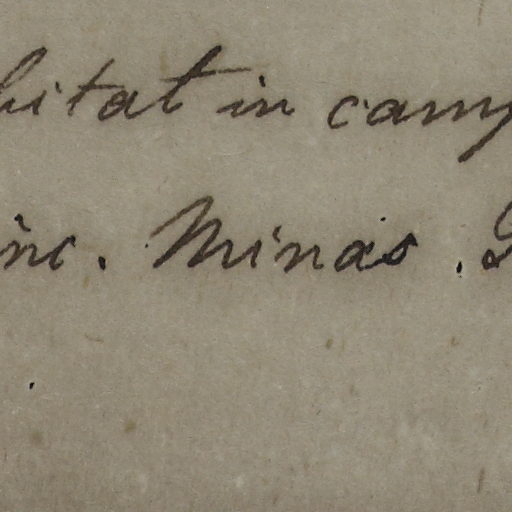 bitat in camp
inc. Minas. G